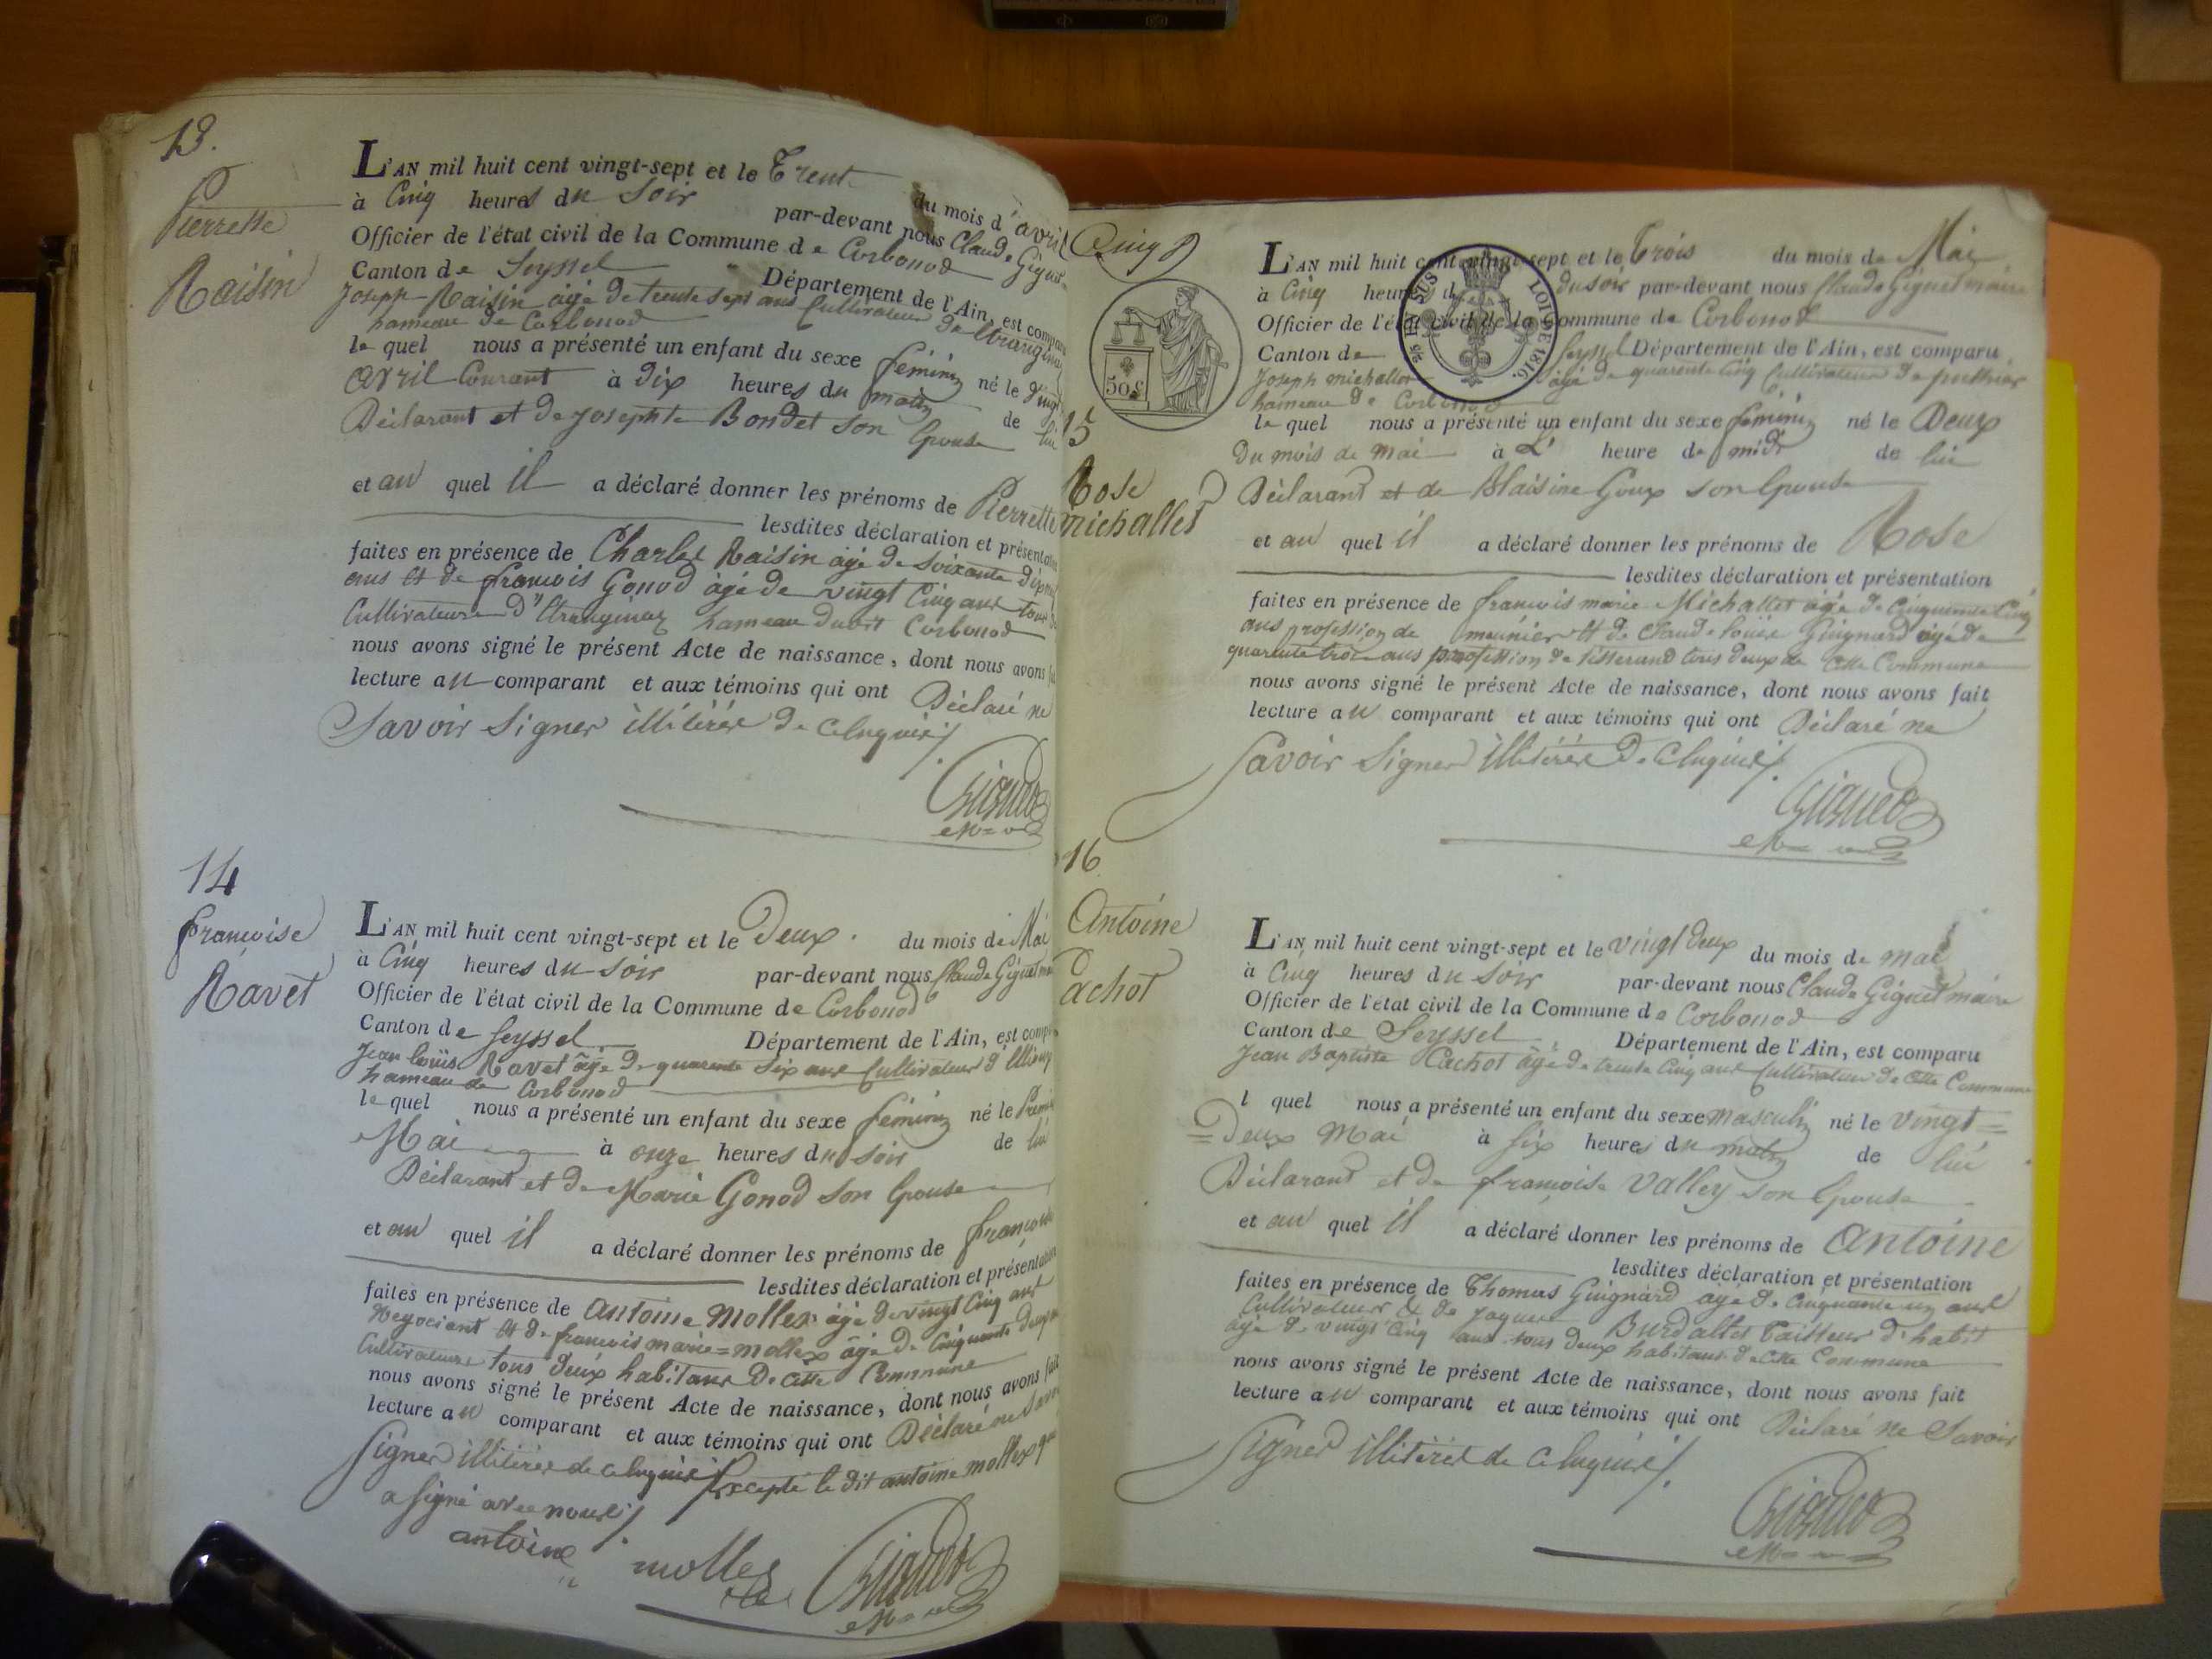 13.
Pierrette
Raisin
L'AN mil huit cent vingt-sept et le Trente du mois d'avril
à Cinq heures du Soir par-devant nous Claude Giguet
Officier de l'état civil de la Commune de Corbonod
Canton de Seyssel Département de l'Ain, est comparu
Joseph Raisin âgé de trente sept ans Cultivateur
hameau de Corbonod
le quel nous a présenté un enfant du sexe féminin né le vingt
avril Courant à dix heures du matin de lui
Déclarant et de Josephte Bondet son Epouse
et au quel il a déclaré donner les prénoms de Pierrette
lesdites déclaration et présentation
faites en présence de Charles Raisin âgé de Soixante
ans et de françois Gonod âgé de vingt Cinq ans tous
Cultivateurs hameau dudit Corbonod
nous avons signé le présent Acte de naissance, dont nous avons
lecture au comparant et aux témoins qui ont Déclaré ne
Savoir Signer illitérés de ce Enquis ./.
Giguet
14
françoise
Ravet
L'AN mil huit cent vingt-sept et le Deux. du mois de Mai
à Cinq heures du Soir par-devant nous Claude Giguet
Officier de l'état civil de la Commune de Corbonod
Canton de Seyssel Département de l'Ain, est comparu
Jean Louis Ravet âgé de quarante Six ans Cultivateur
hameau de Corbonod
le quel nous a présenté un enfant du sexe féminin né le Premier
Mai à onze heures du Soir de lui
Déclarant et de Marie Gonod son Epouse
et au quel il a déclaré donner les prénoms de françoise
lesdites déclaration et présentation
faites en présence de Antoine Mollex âgé de vingt Cinq ans
Négociant et de françois marie=mollex âgé de Cinquante
Cultivateurs tous deux habitans de cette Commune
nous avons signé le présent Acte de naissance, dont nous avons fait
lecture au comparant et aux témoins qui ont Déclaré ne Savoir
Signer illitérés de ce Enquis Excepté le dit antoine mollex qui
a signé avec nous ./.
antoine mollex Giguet
Cinq
50 c
15
Rose
michallet
L'AN mil huit cent vingt-sept et le Trois du mois de Mai
à Cinq heures du soir par-devant nous Claude Giguet maire
Officier de l'état civil de la Commune de Corbonod
Canton de Seyssel Département de l'Ain, est comparu
Joseph michallet âgé de quarente Cinq Cultivateur de puthier
hameau de Corbonod
le quel nous a présenté un enfant du sexe féminin né le Deux
Du mois de mai à L' heure de midi de lui
Déclarant et de Blaisine Goux son Epouse
et au quel il a déclaré donner les prénoms de Rose
lesdites déclaration et présentation
faites en présence de francois marie Michallet âgé de Cinquante Cinq
ans profession de meunier et de Claude louis Guignard âgé de
quarente trois ans profession de tisserand tous deux de cette Commune
nous avons signé le présent Acte de naissance, dont nous avons fait
lecture au comparant et aux témoins qui ont Déclaré ne
Savoir Signer illitérés de ce Enquis ./.
Giguet
LOI DE 1816.
16
Antoine
Cachot
L'AN mil huit cent vingt-sept et le vingt deux du mois de mai
à Cinq heures du Soir par-devant nous Claude Giguet maire
Officier de l'état civil de la Commune de Corbonod
Canton de Seyssel Département de l'Ain, est comparu
Jean Baptiste Cachot âgé de trente Cinq ans Cultivateur de cette Commune
l quel nous a présenté un enfant du sexe masculin né le vingt=
=Deux Mai à Six heures du matin de lui
Déclarant et de françoise Valley son Epouse
et au quel il a déclaré donner les prénoms de Antoine
lesdites déclaration et présentation
faites en présence de Thomas Guignard âgé de Cinquante un ans
Cultivateur & de Jaques Burdallet Tailleur d'habit
âgé de vingt Cinq ans tous deux habitans de cette Commune
nous avons signé le présent Acte de naissance, dont nous avons fait
lecture au comparant et aux témoins qui ont Déclaré ne Savoir
Signer illitérés de ce Enquis ./.
Giguet